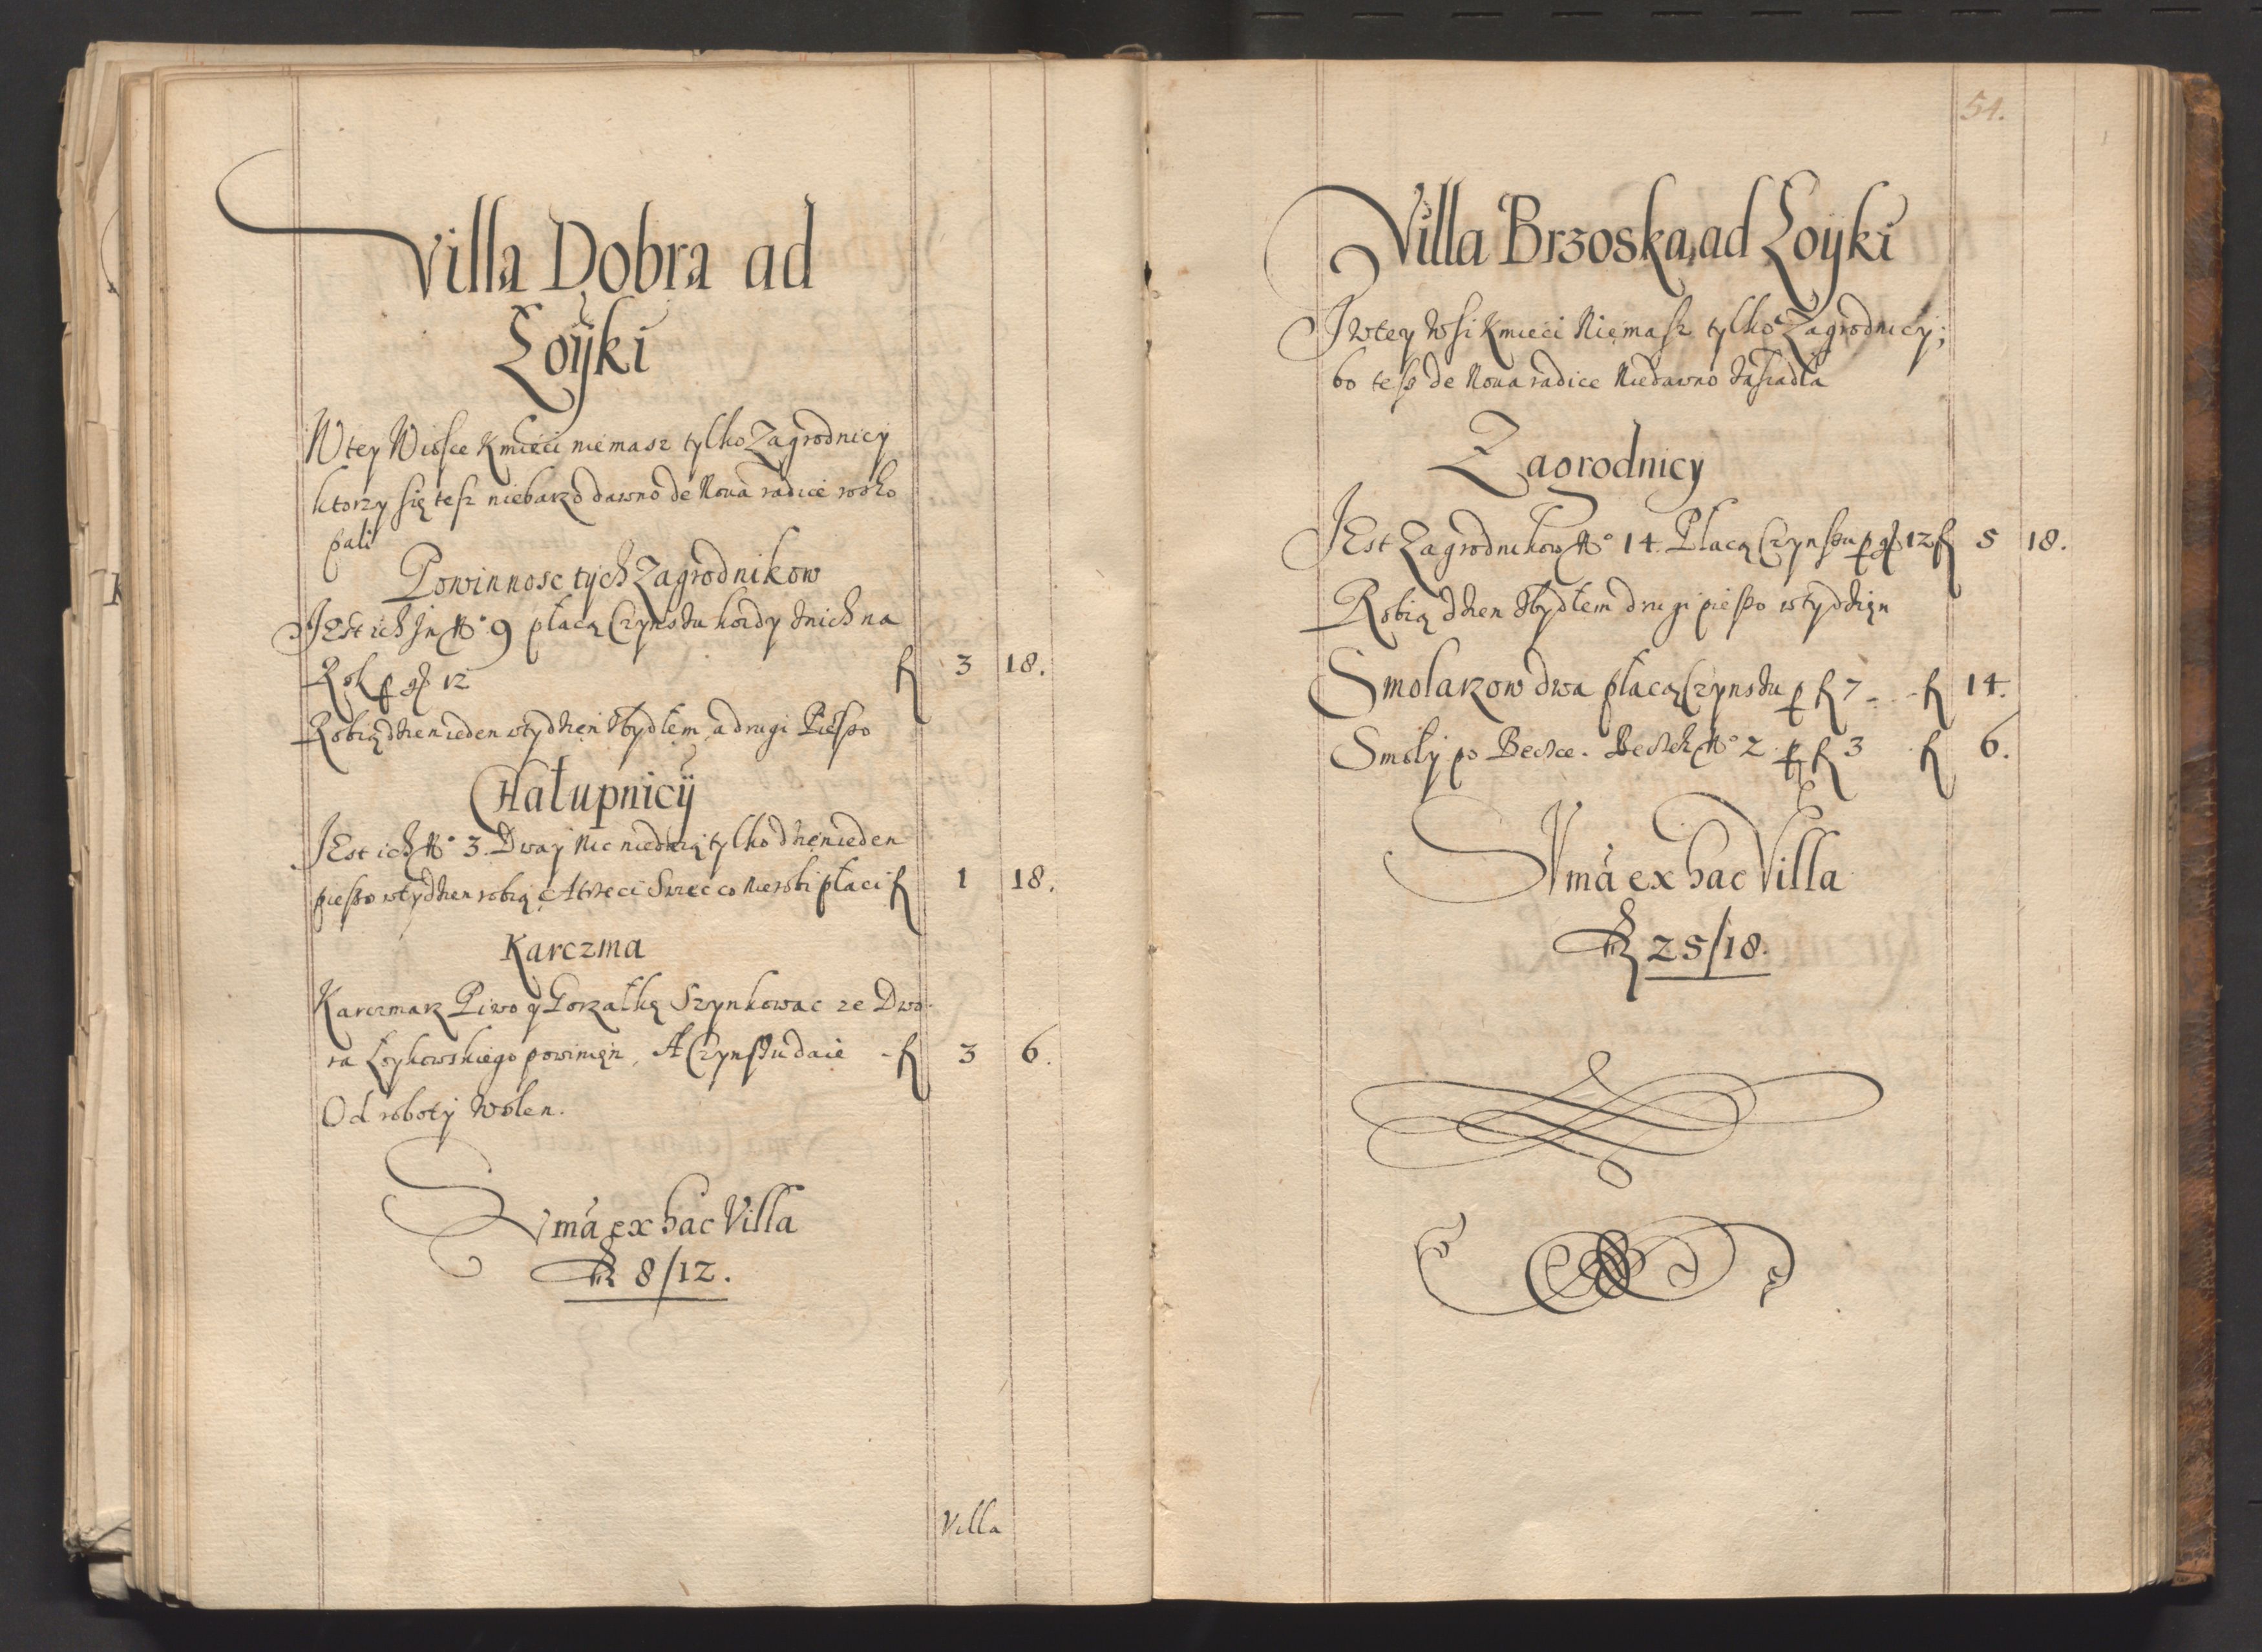 Villa Dobra ad
Łoÿki
W tey Wiosce Kmieci niemasz tylko Zagrodnicy
ktorzy się tesz niebarzo dawno de Noua radice rosko
pali
Powinnosc tych Zagrodnikow
JEst ich Jn No 9 płacą Czynszu kozdy znich na
Rok p gr 12 f 3 18.
Robią dzien ieden wtydzien zbydłem a drugi Pieszo
Chałupnicÿ
JEst ich No 3. Dway Nic niedaią tylko dzien ieden
pieszo wtydzien robią A trzeci Szwiec co nierobi płaci f 1 18.
Karczma
Karczmarz Piwo y Gorzałkę Szynkowac ze Dwo-
ra Łoykowskiego powinien, A Czynszu daie - f 3 6.
Od roboty Wolen.
Suma ex hac Villa
fl 8/12.
Villa
54.
Villa Brzoska, ad Łoÿki
J wtey Wsi Kmieci Niemasz tylko Zagrodnicy;
bo tesz de Noua radice Niedawno zasiadła
Zagrodnicy
JEst Zagrodnikow No 14. Płacą Czynszu p gr 12 f 5 18.
Robią dzien zbydłem drugi pieszo wtydzien
Smolarzow dwa płacą Czynszu p f 7 - - f 14.
Smoły po Beczce. Beczek No 2 p f 3 f 6.
Suma ex hac Villa
fl 25/18.